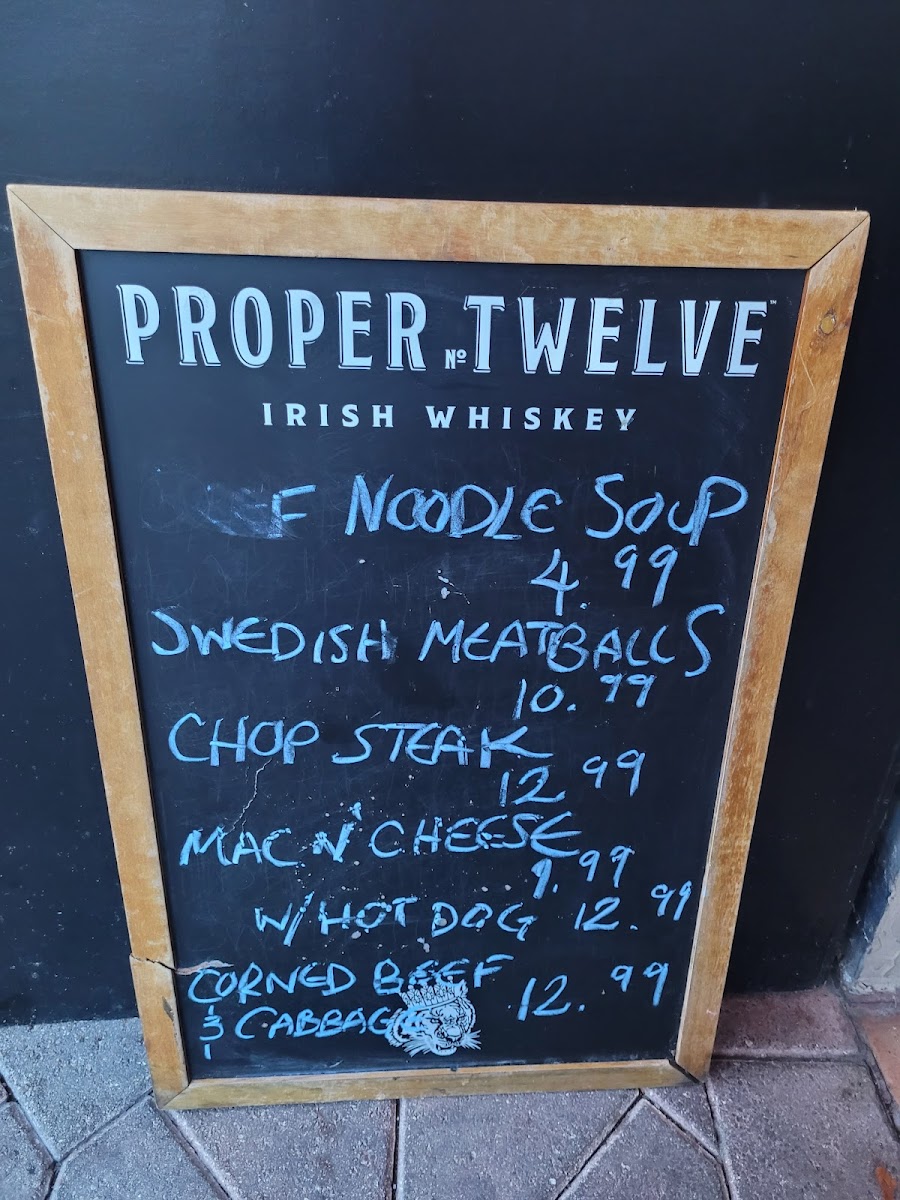 PROPER No. TWELVE™
IRISH WHISKEY
F NOODLE SOUP
4.99
SWEDISH MEATBALLS
10.99
CHOP STEAK
12.99
MAC N' CHEESE
9.99
W/ HOT DOG 12.99
CORNED BEEF
& CABBAGE 12.99